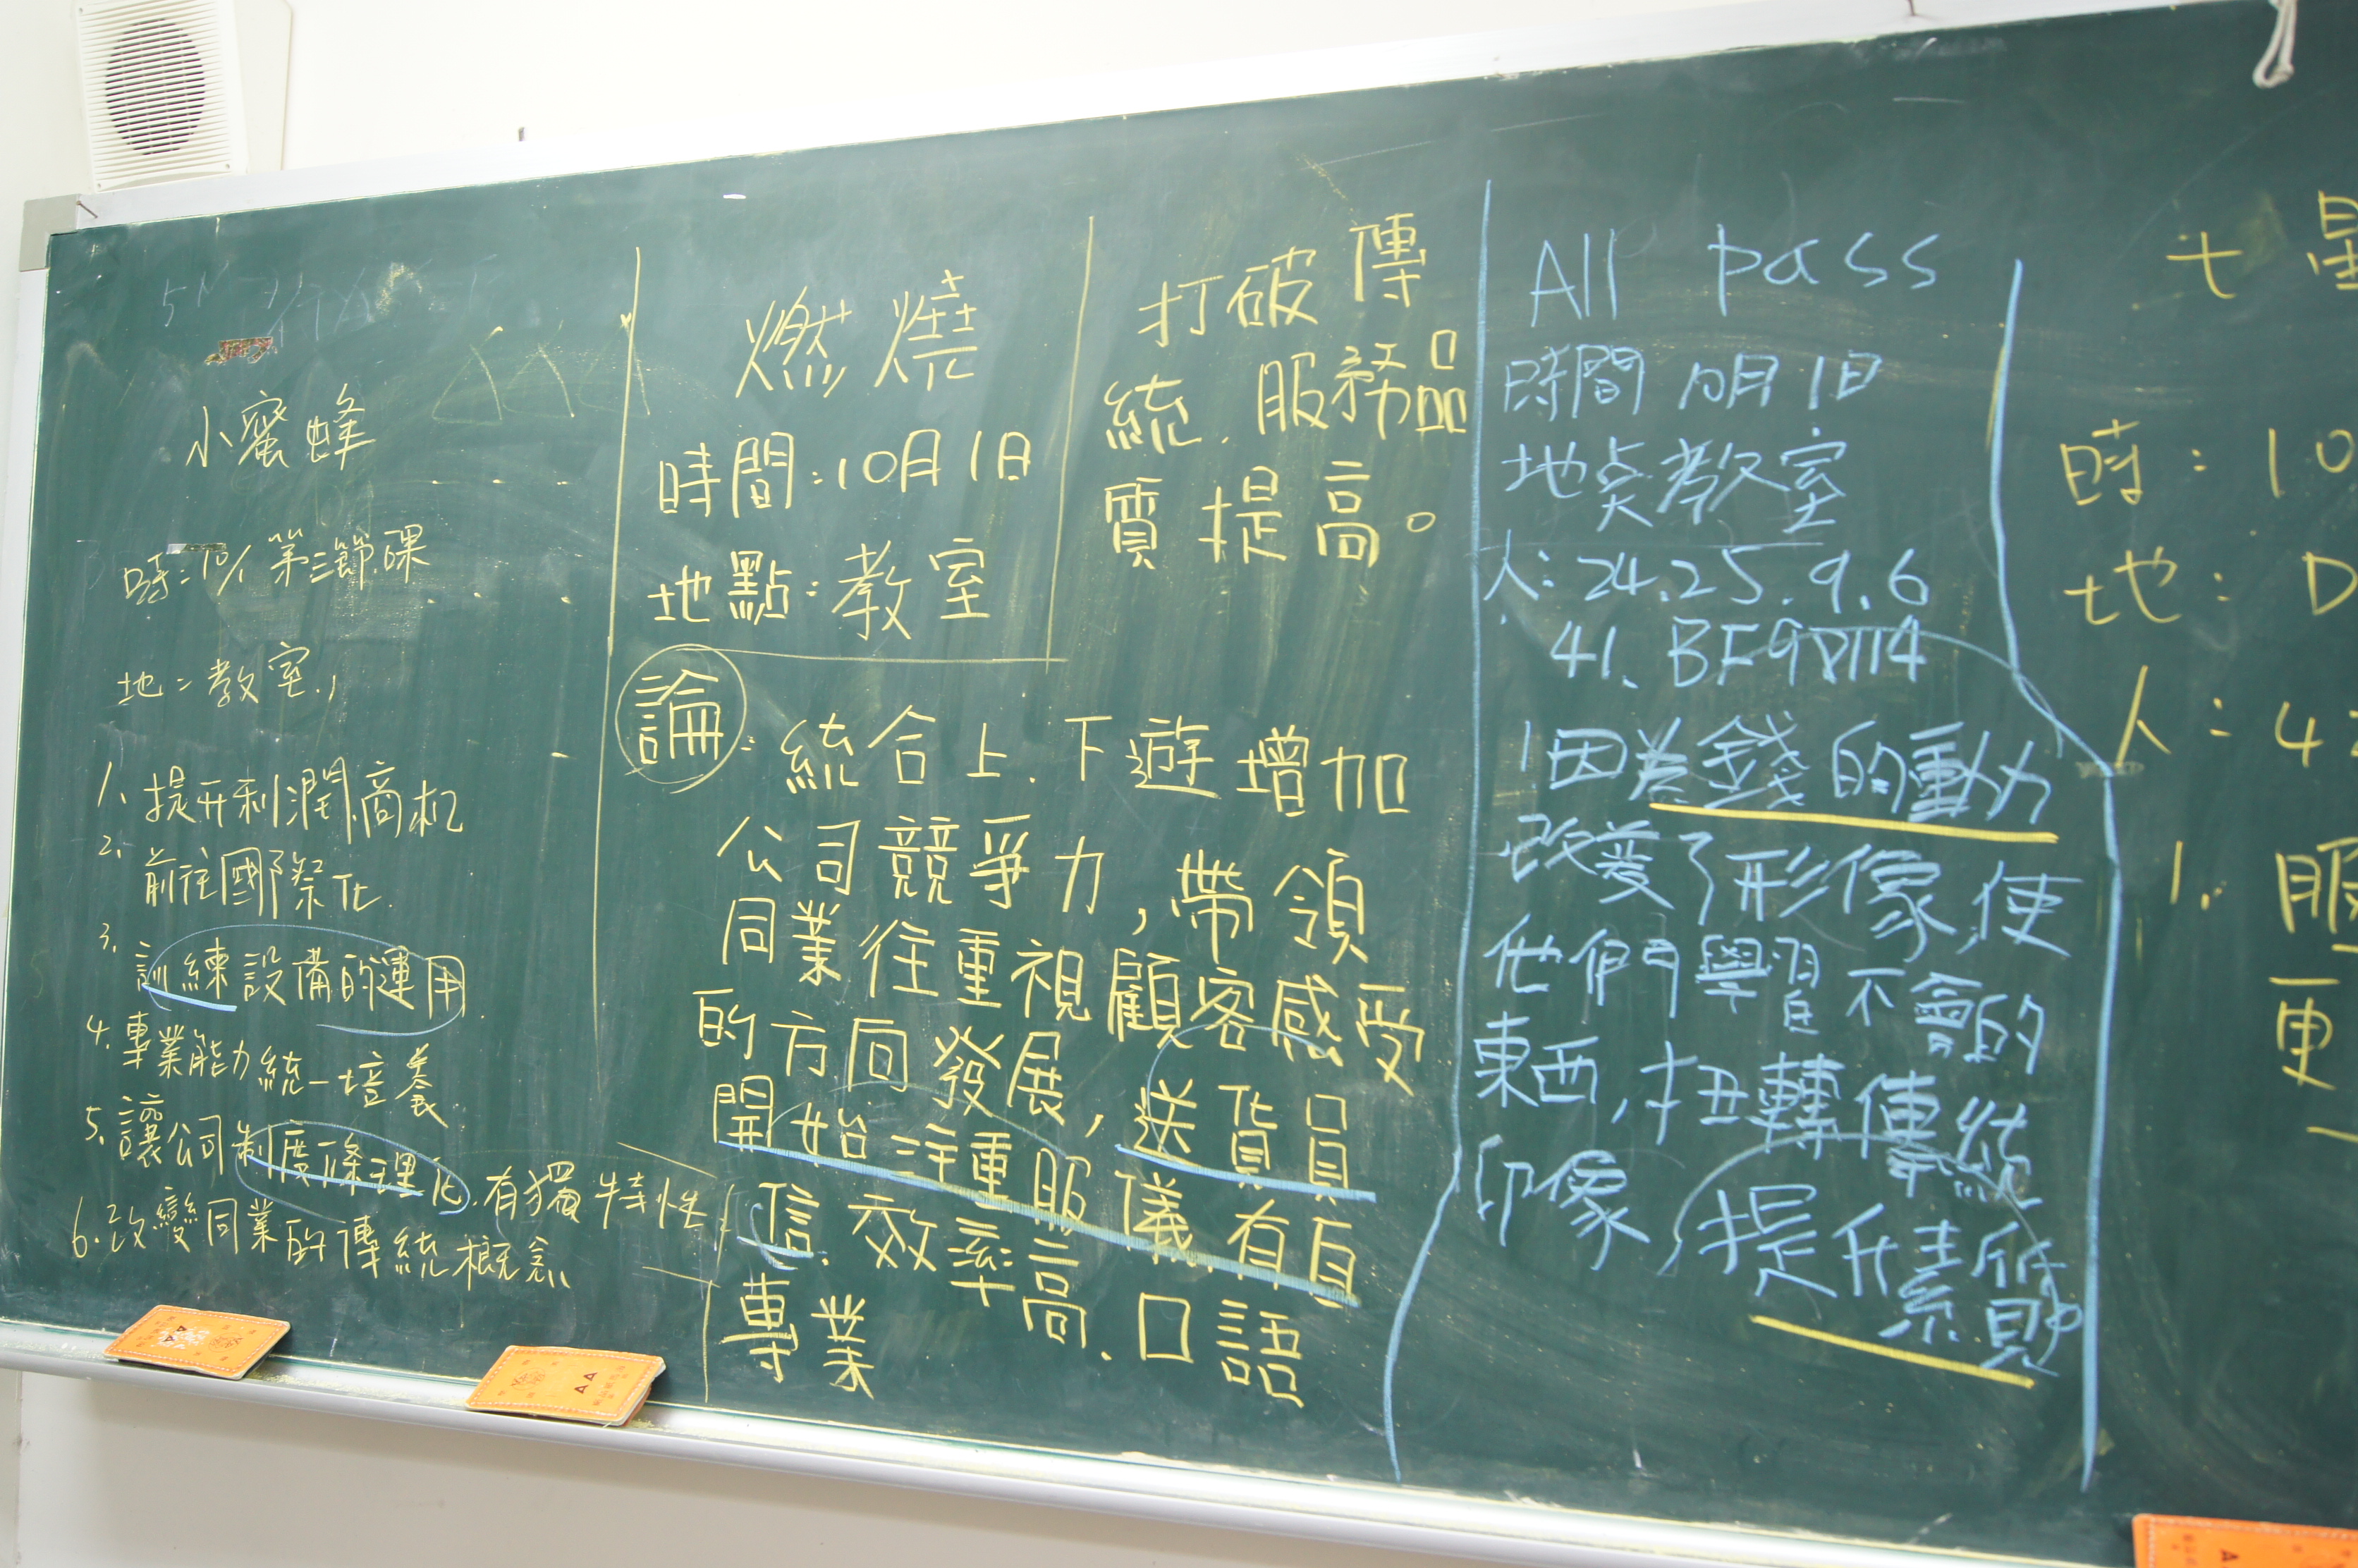 小蜜蜂
時:10/1 第三節課
地:教室
1、提升利潤、商机
2、前往國際化.
3.訓練設備的運用.
4.專業能力統一培養
5.讓公司制度條理化.有獨特性
6.改變同業的傳統概念
燃燒
時間:10月1日
地點:教室
論:統合上.下遊增加
公司競爭力,帶領
同業往重視顧客感受
的方向發展,送貨員
開始注重服儀.有自
信.效率高.口語
專業
打破傳
統.服務品
質提高。
All pass
時間 10月1日
地点教室
人:24.25.9.6
41.BF98114
1因為錢的動力
改變了形像,使
他們學習不會的
東西,扭轉傳統
印像,提升素質
七星
時:10
地:D
人:4
1.服
更